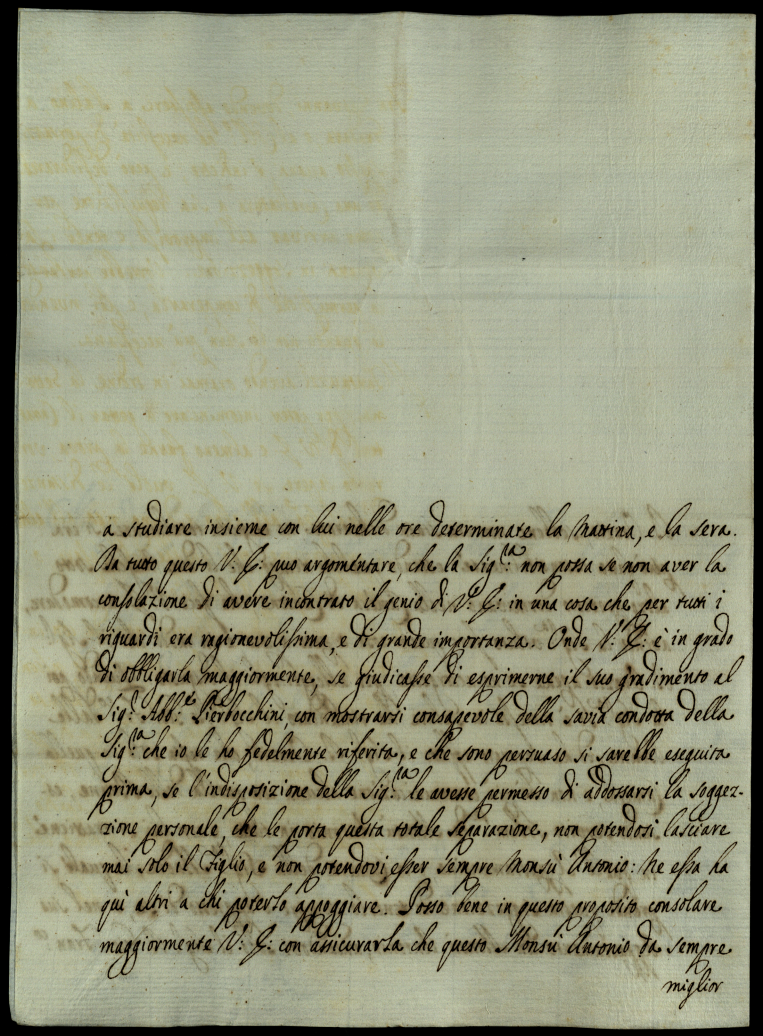 a studiare insieme con lui nelle ore determinate la mattina, e la sera.
Da tutto questo V: S: può argomentare, che la Sig:ra non possa se non aver la
consolazione di avere incontrato il genio di V: S: in una cosa che per tutti i
riguardi era ragionevolissima, e di grande importanza. Onde V: S: è in grado
di obbligarla maggiormente, se giudicasse di esprimerne il suo gradimento al
Sig: Abb:e Pierbocchini, con mostrarsi consapevole della savia condotta della
Sig:ra che io le ho fedelmente riferita, e che sono persuaso si sarebbe eseguita
prima, se l'indisposizione della Sig:ra le avesse permesso di addossarsi la soggez-
zione personale, che le porta questa totale separazione, non potendosi lasciare
mai solo il Figlio, e non potendovi esser sempre Monsù Antonio: Ne essa ha
quì altri a chi poterlo appoggiare. Posso bene in questo proposito consolare
maggiormente V: S: con assicurarla che questo Monsù Antonio da sempre
miglior